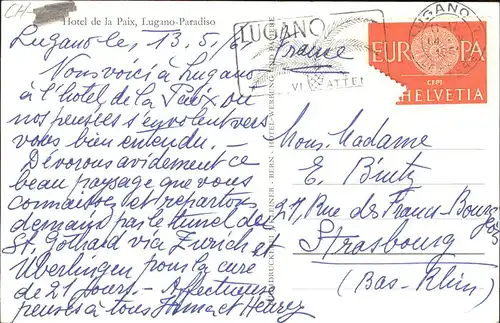 CH-
Hotel de la Paix, Lugano-Paradiso
Lugano le, 13.5.6
Nous voici à Lugano
à l'hotel de la Paix où
nos pensées s'envolent vers
vous bien entendu. -
Dévorons avidement ce
beau paysage que vous
connaissez et repartons
demain par le tunnel de
St. Gothard via Zurich et
Überlingen pour la cure
de 21 jours. - Affectueuses
pensées à tous et Henry
HOTEL-WERBUNG
BERN
LUGANO
VI ATTEN
France
LUGANO
EUROPA
CEPT
HELVETIA
Mons. Madame
E. Bintz
27, Rue des Francs-Bourgeois
Strasbourg
(Bas-Rhin)